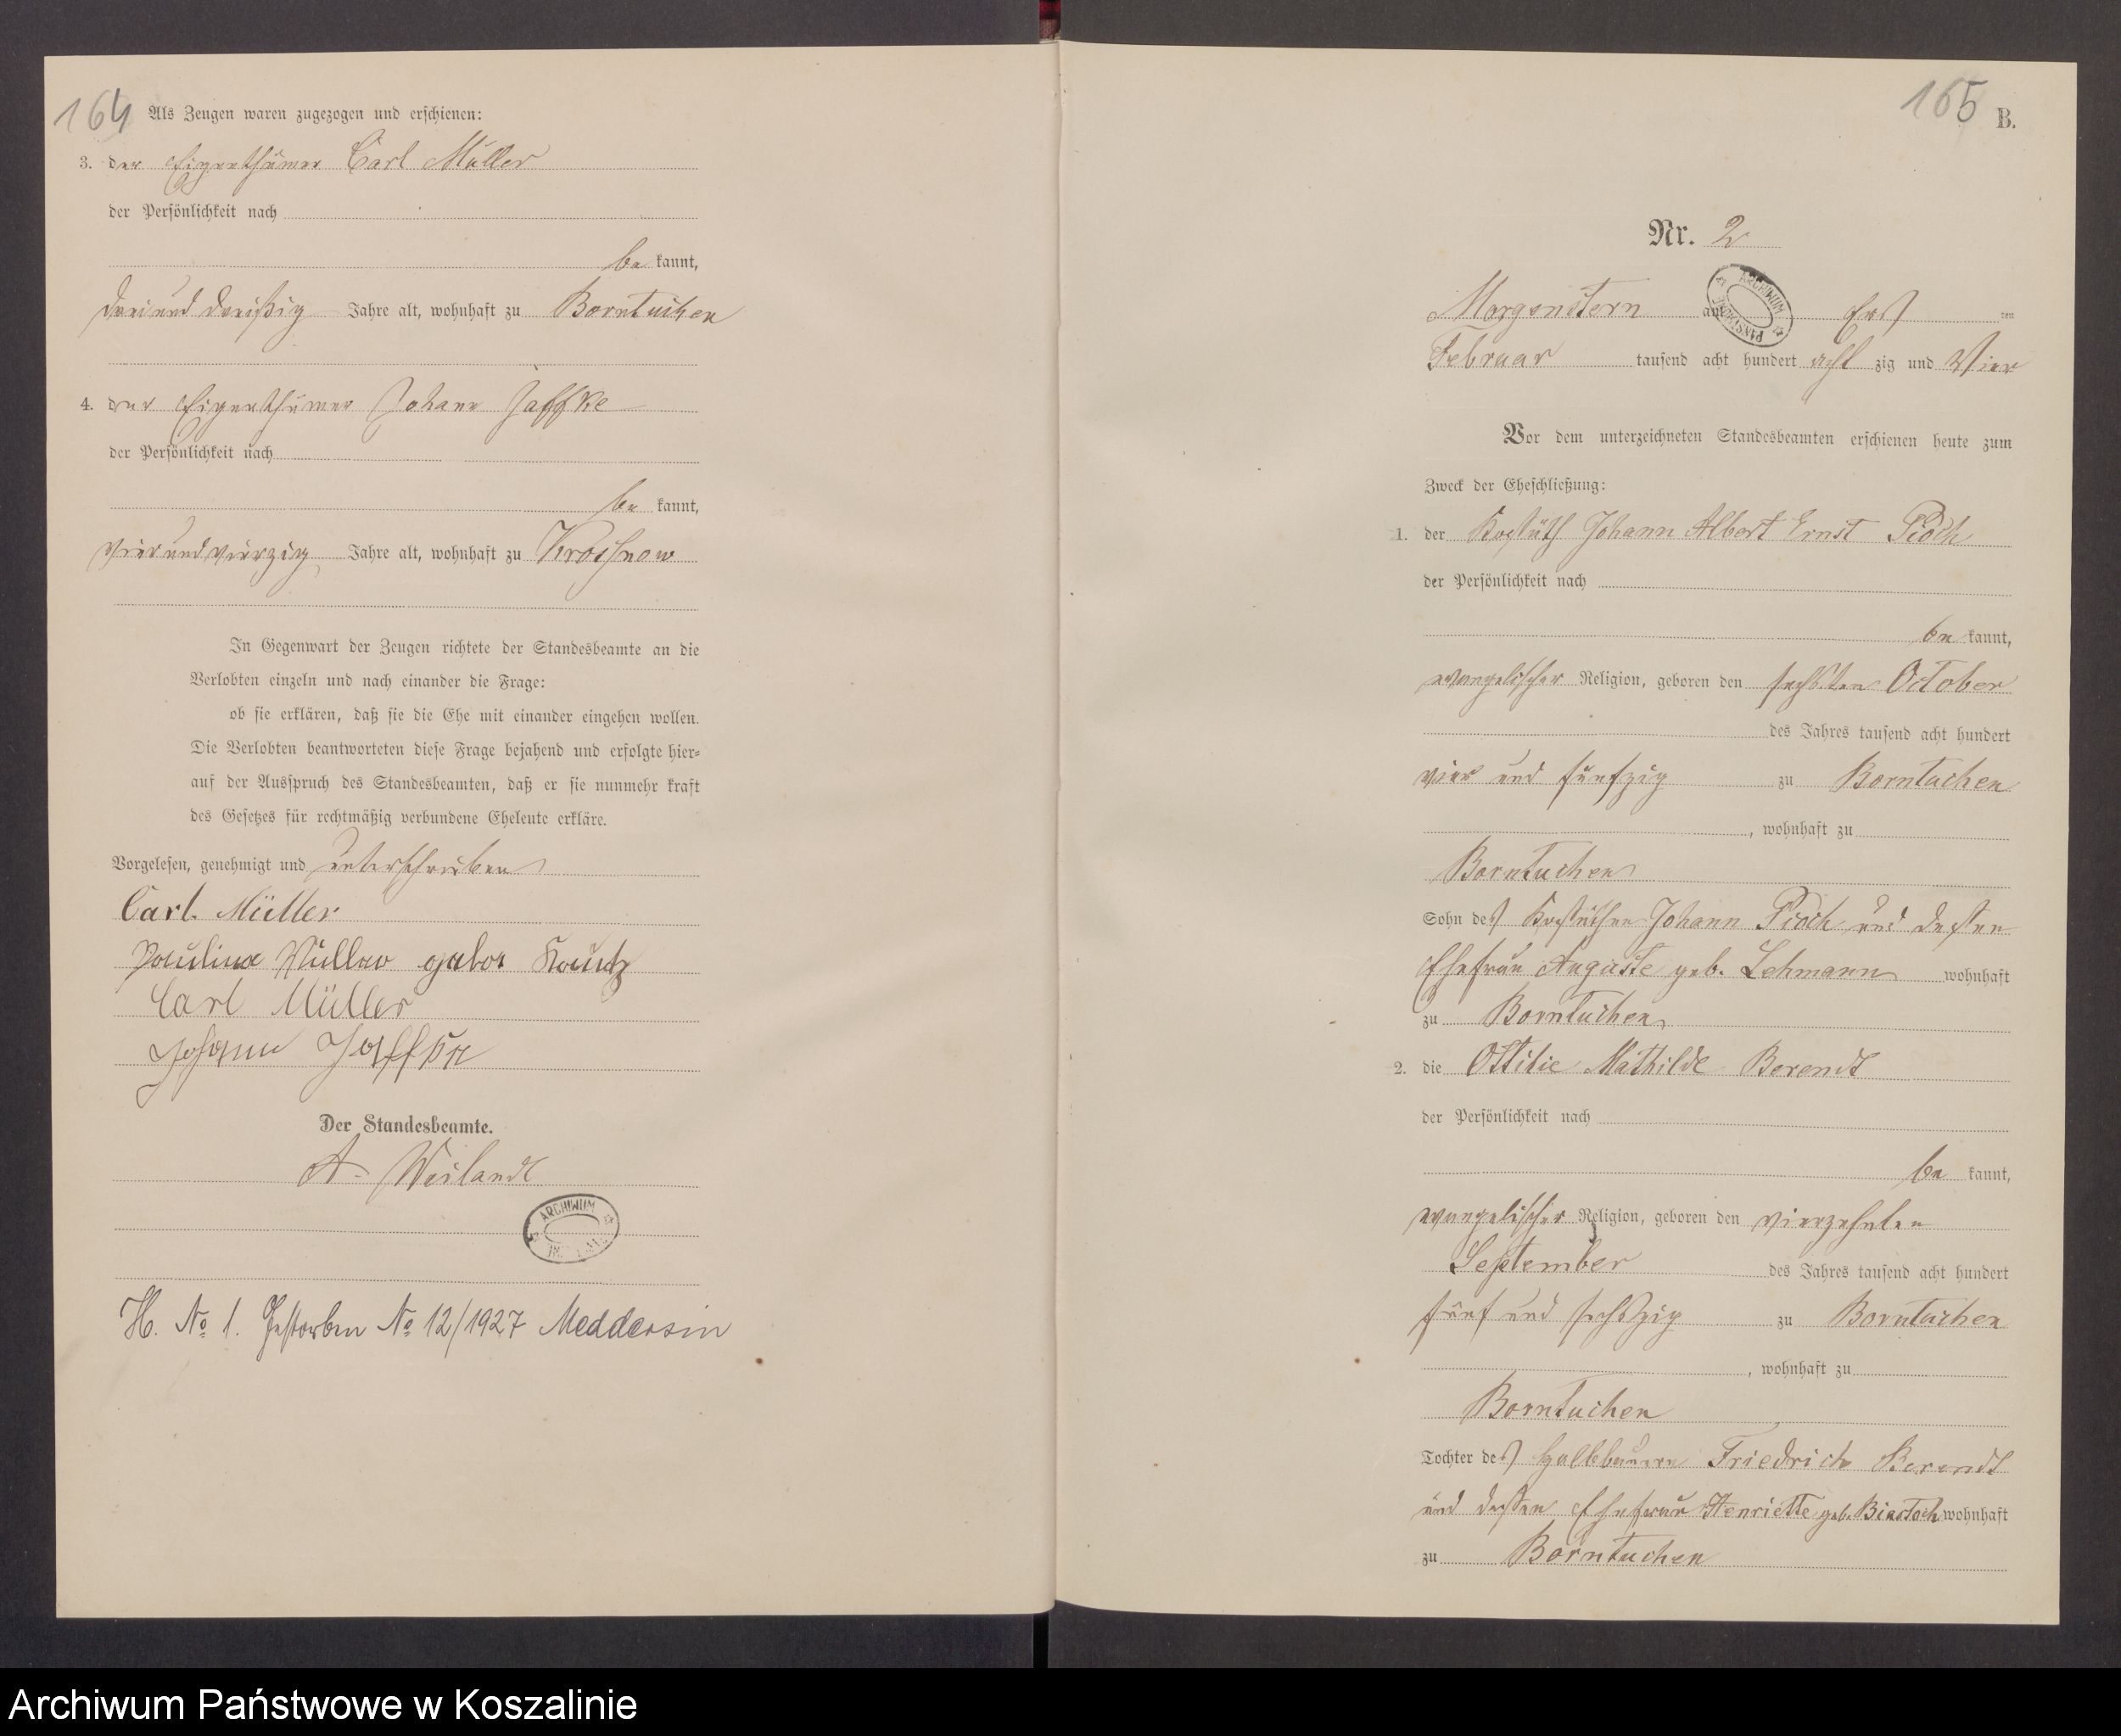 164
Als Zeugen waren zugezogen und erschienen:
3. der Eigenthümer Carl Müller
der Persönlichkeit nach
be kannt,
dreiund dreißig Jahre alt, wohnhaft zu Borntuchen
4. der Eigenthümer Johann Jaffke
der Persönlichkeit nach
be kannt,
vierundvierzig Jahre alt, wohnhaft zu Kroschnow
In Gegenwart der Zeugen richtete der Standesbeamte an die
Verlobten einzeln und nach einander die Frage:
ob sie erklären, daß sie die Ehe mit einander eingehen wollen.
Die Verlobten beantworteten diese Frage bejahend und erfolgte hier=
auf der Ausspruch des Standesbeamten, daß er sie nunmehr kraft
des Gesetzes für rechtmäßig verbundene Eheleute erkläre.
Vorgelesen, genehmigt und unterschrieben
Carl Müller
Pauline Müller gebor
Carl Müller
Johann Jaffke
Der Standesbeamte.
A. Weilandt
ARCHIWUM
H. No 1. Gestorben No 12/1927 Meddersin
165
B.
Nr. 2
ARCHIWUM PAŃSTWOWE
Morgenstern am Erst ten
Februar tausend acht hundert acht zig und Vier
Vor dem unterzeichneten Standesbeamten erschienen heute zum
Zweck der Eheschließung:
1. der Johann Albert Ernst Pioch
der Persönlichkeit nach
be kannt,
evangelischer Religion, geboren den sechsten October
des Jahres tausend acht hundert
vier und fünfzig zu Borntuchen
, wohnhaft zu
Borntuchen
Sohn des Johann Pioch und dessen
Ehefrau Auguste geb. Lehmann wohnhaft
zu Borntuchen
2. die Ottilie Mathilde Berendt
der Persönlichkeit nach
be kannt,
evangelischer Religion, geboren den vierzehnten
September des Jahres tausend acht hundert
fünf und sechszig zu Borntuchen
, wohnhaft zu
Borntuchen
Tochter des Halbbauern Friedrich Berendt
und dessen Ehefrau Henriette geb. wohnhaft
zu Borntuchen
Archiwum Państwowe w Koszalinie